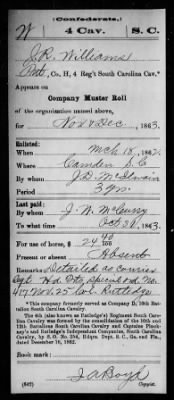 (Confederate.)
W 4 Cav. S. C.
J. R. Williams
Pvt, Co. H, 4 Reg't South Carolina Cav.*
Appears on
Company Muster Roll
of the organization named above,
for Nov & Dec, 1863.
Enlisted:
When Mch 18, 1862.
Where Camden S.C.
By whom J. D. McIlwain
Period 3 yrs.
Last paid:
By whom J. N. McCurry
To what time Oct 31, 1863.
For use of horse, $ 24 40/100
Present or absent Absent
Remarks: Detailed as courier
Hd Qts Special ord No.
Nov. 25 Col. Rutledge
*This company formerly served as Company D, 10th Battalion South Carolina Cavalry.
The 4th (also known as Rutledge's) Regiment South Carolina Cavalry was formed by the consolidation of the 10th and 12th Battalions South Carolina Cavalry and Captains Pinckney's and Rutledge's Independent Companies, South Carolina Cavalry, by S. O. No. 254, Hdqrs. Dept. S. C., Ga. and Fla., dated December 16, 1862.
Book mark:
J A Boyd
(642) Copyist.